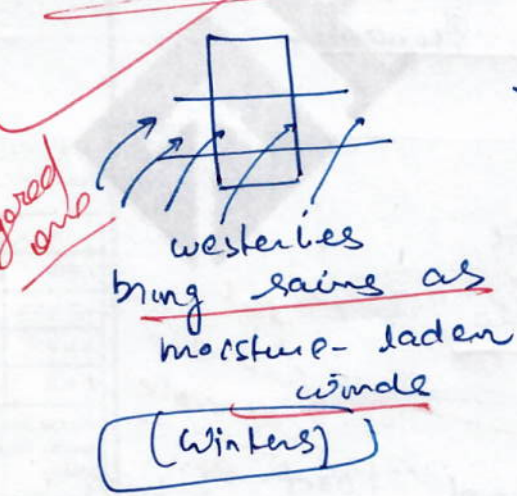 westerlies
bring rains as
moisture-laden
winds
(Winters)
one